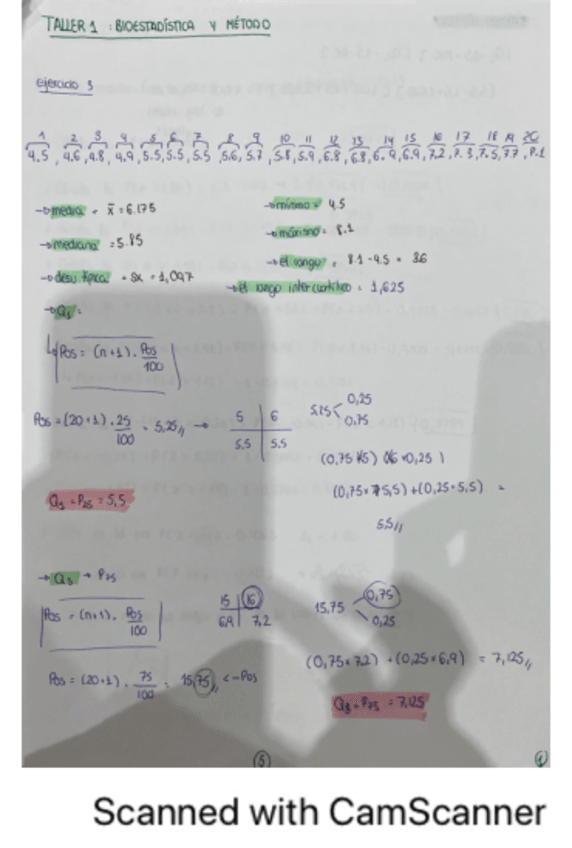 TALLER 1 : BIOESTADÍSTICA Y MÉTODO
ejercicio 3
1 2 3 4 5 6 7 8 9 10 11 12 13 14 15 16 17 18 19 20
4.5, 4.6, 4.8, 4.9, 5.5, 5.5, 5.5, 5.6, 5.7, 5.8, 5.9, 6.8, 6.8, 6.9, 6.9, 7.2, 7.3, 7.5, 7.7, 8.1
→ media = x̄ = 6.175
→ mínimo = 4.5
→ mediana = 5.85
→ máximo = 8.1
→ el rango = 8.1 - 4.5 = 3.6
→ desv típica = sx = 1,097
→ el rango intercuartílico = 1,625
→ Q₁ =
Pos = (n+1) · Pos/100
Pos = (20+1) · 25/100 = 5,25 →
5 | 6
5.5 | 5.5
5.25 < 0,25
0,75
(0,75 × 5,5) + (0,25 × 5,5) =
5.5
Q₁ = P₂₅ = 5,5
→ Q₃ → P₇₅
Pos = (n+1) · Pos/100
15 | 16
6,9 | 7,2
15,75
0,75
0,25
Pos = (20+1) · 75/100 = 15,75 <- Pos
(0,75 × 7,2) + (0,25 × 6,9) = 7,125
Q₃ = P₇₅ = 7,125
5
1
Scanned with CamScanner